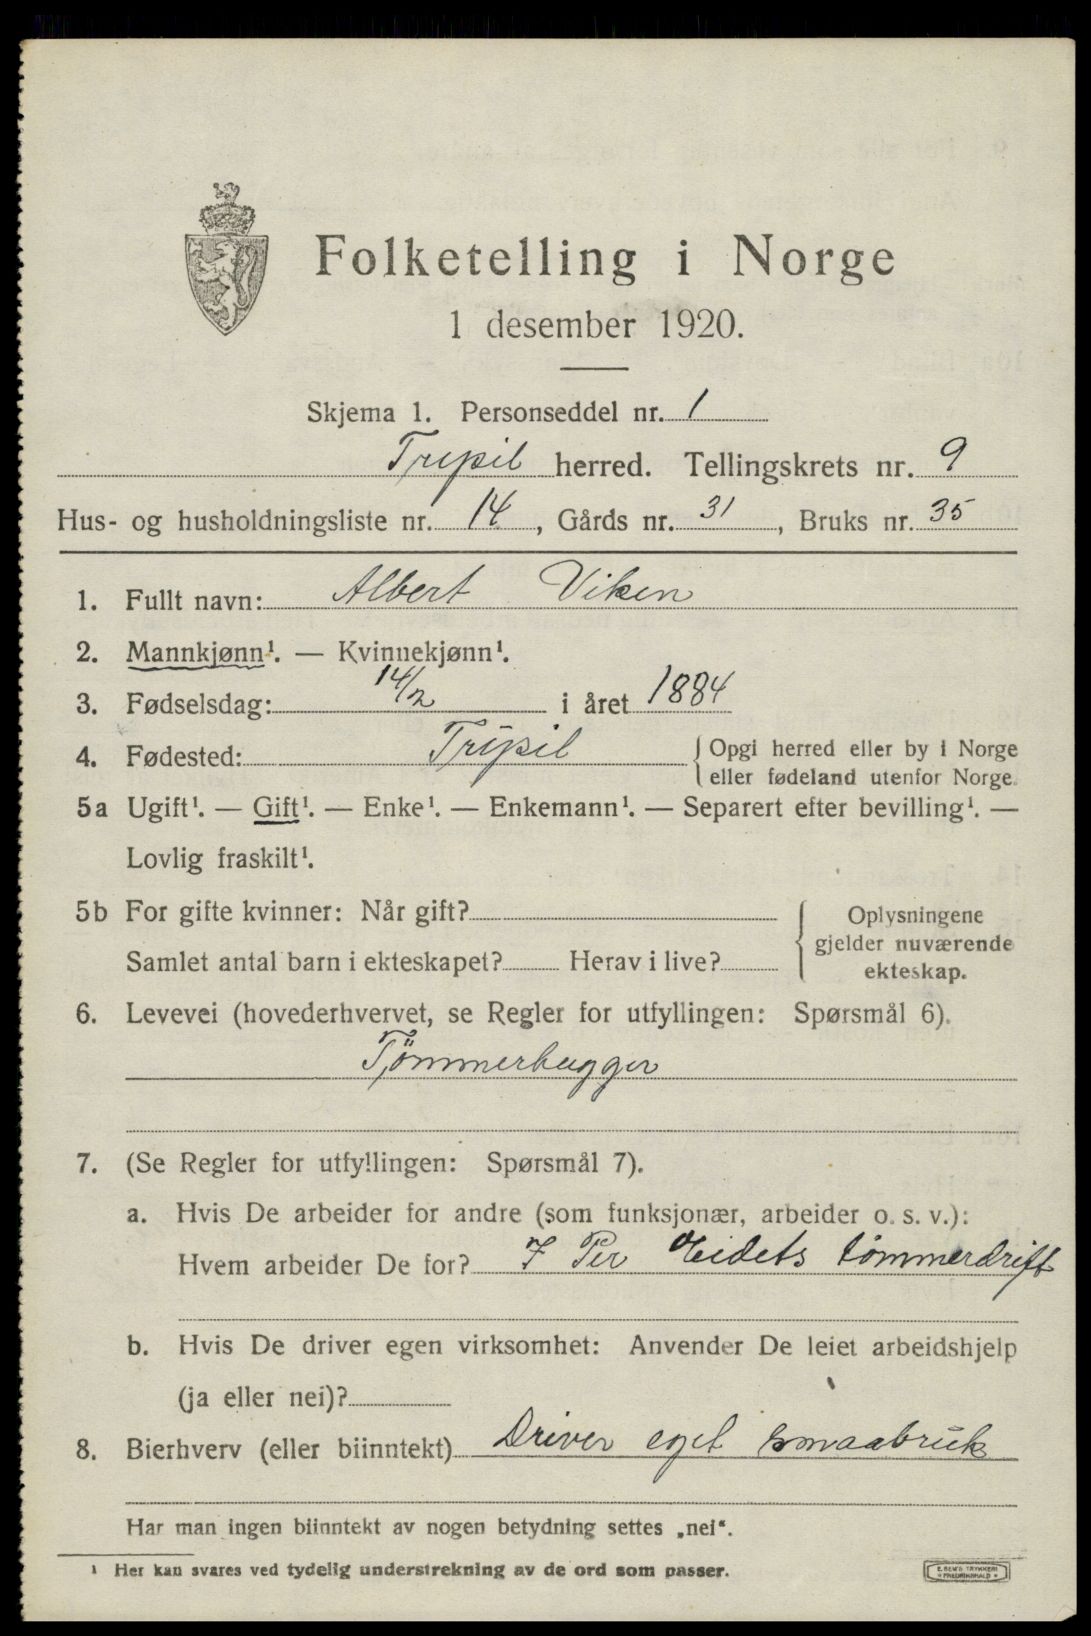 Folketelling i Norge
1 desember 1920.
Skjema 1. Personseddel nr. 1
Trysil herred. Tellingskrets nr. 9
Hus- og husholdningsliste nr. 14, Gårds nr. 31, Bruks nr. 35
1. Fullt navn: Albert Viken
2. Mannkjønn¹. — Kvinnekjønn¹.
3. Fødselsdag: 14/2 i året 1884
4. Fødested: Trysil { Opgi herred eller by i Norge
eller fødeland utenfor Norge.
5a Ugift¹. — Gift¹. — Enke¹. — Enkemann¹. — Separert efter bevilling¹. —
Lovlig fraskilt¹.
5b For gifte kvinner: Når gift?
Samlet antal barn i ekteskapet? Herav i live?
{ Oplysningene
gjelder nuværende
ekteskap.
6. Levevei (hovederhvervet, se Regler for utfyllingen: Spørsmål 6).
Tømmerhugger
7. (Se Regler for utfyllingen: Spørsmål 7).
a. Hvis De arbeider for andre (som funksjonær, arbeider o. s. v.):
Hvem arbeider De for? I Per Eidets tømmerdrift
b. Hvis De driver egen virksomhet: Anvender De leiet arbeidshjelp
(ja eller nei)?
8. Bierhverv (eller biinntekt) Driver eget smaabruk
Har man ingen biinntekt av nogen betydning settes „nei“.
¹ Her kan svares ved tydelig understrekning av de ord som passer.
E. SEM'S TRYKKERI
FREDRIKSHALD